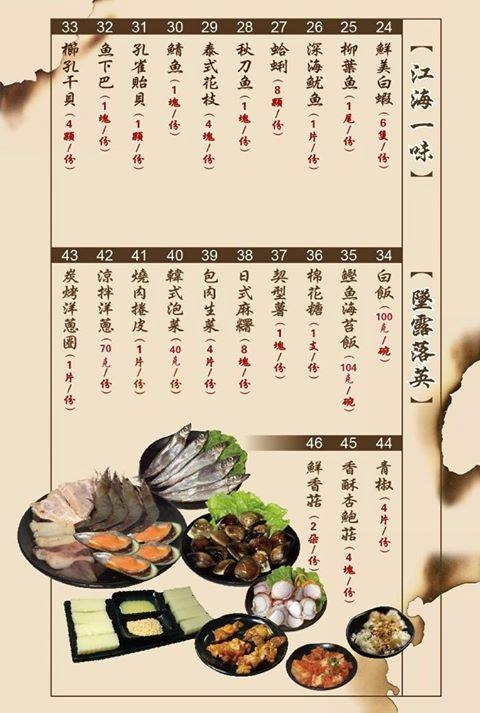 【江海一味】
24 鮮美白蝦（6隻/份）
25 柳葉魚（1尾/份）
26 深海魷魚（1片/份）
27 蛤蜊（8顆/份）
28 秋刀魚（1塊/份）
29 泰式花枝（4塊/份）
30 鯖魚（1塊/份）
31 孔雀貽貝（1顆/份）
32 魚下巴（1塊/份）
33 櫛孔干貝（4顆/份）
【墜露落英】
34 白飯（100克/碗）
35 鰹魚海苔飯（104克/碗）
36 棉花糖（1支/份）
37 契型薯（1塊/份）
38 日式麻糬（8塊/份）
39 包肉生菜（4片/份）
40 韓式泡菜（40克/份）
41 燒肉捲皮（1片/份）
42 涼拌洋蔥（70克/份）
43 炭烤洋蔥圈（1片/份）
44 青椒（4片/份）
45 香酥杏鮑菇（4塊/份）
46 鮮香菇（2朵/份）